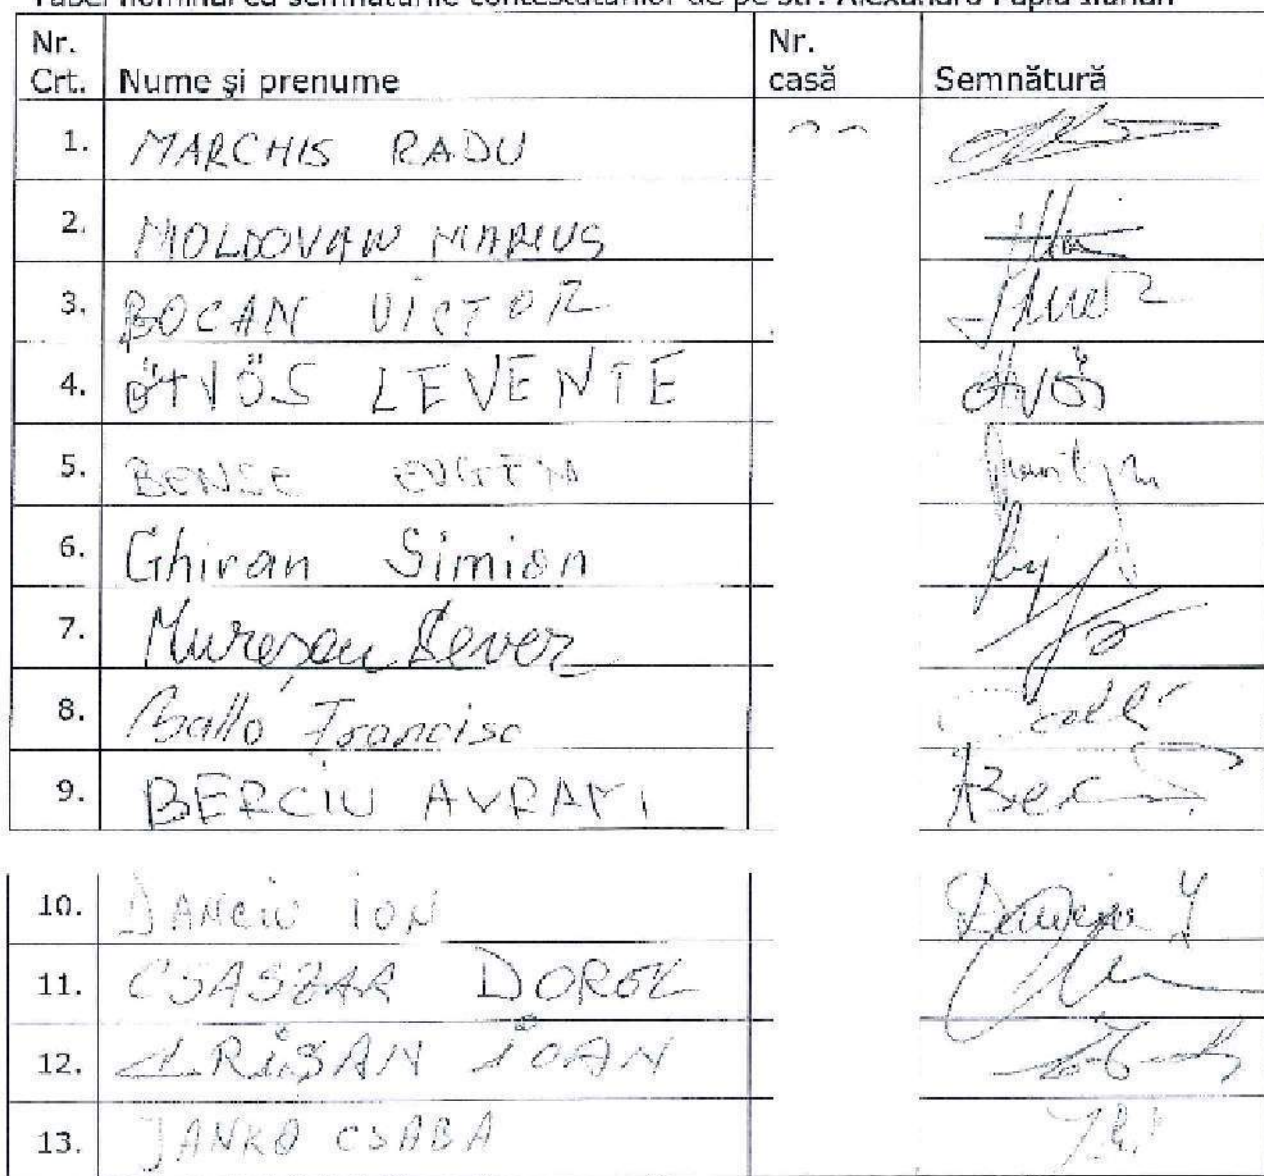 Tabel nominal cu semnăturile contestatarilor de pe str. Alexandru Papiu Ilarian
Nr. Crt. Nume şi prenume Nr. casă Semnătură
1. MARCHIS RADU
2. MOLDOVAN MARIUS
3. BOCAN VICTOR
4. ÖTVÖS LEVENTE ötvös
5. BENSE
6. Ghiran Simion
7. Mureşan Sever
8. Balló Francisc
9. BERCIU AVRAM
10. DANCIU ION
11. CSASZAR DOREL
12. CRIŞAN IOAN
13. JANKO CSABA